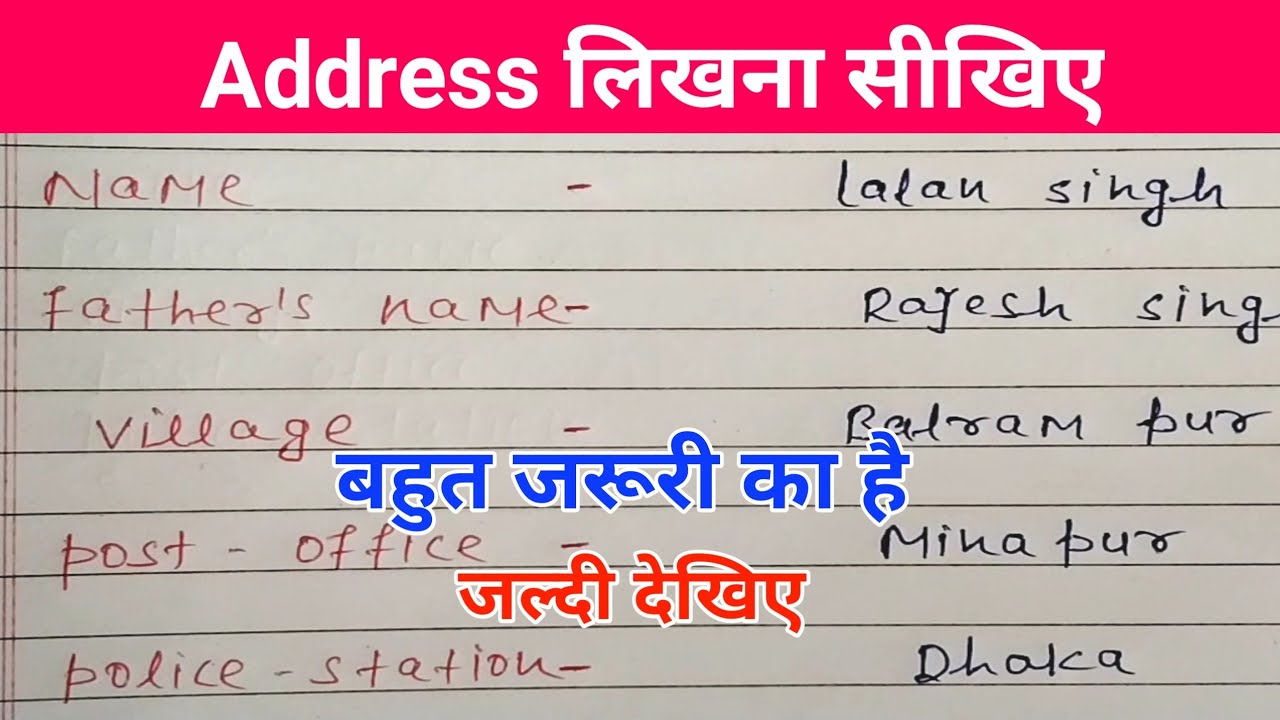 Address लिखना सीखिए
Name - Lalan singh
Father's name- Rajesh sing
village - Balram pur
बहुत जरूरी का है
post - office - Mina pur
जल्दी देखिए
police - station- Dhaka